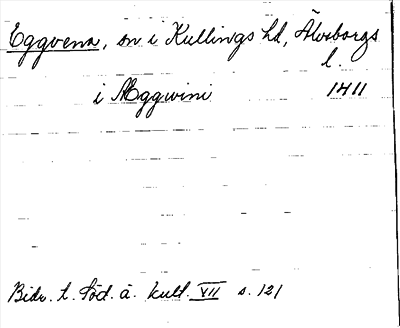 Eggvena, sn i Kullings hd, Älvsborgs
l.
i Æggwini 1411
Bidr. t. Söd. ä. kult. VII s. 121